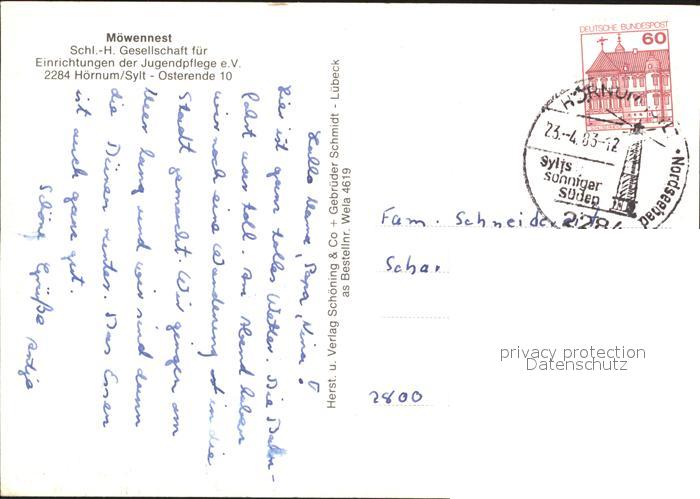 Möwennest
Schl.-H. Gesellschaft für
Einrichtungen der Jugendpflege e.V.
2284 Hörnum/Sylt - Osterende 10
Hallo Mama, Papa, Nina!
Hier ist ganz tolles Wetter. Die Bahn-
fahrt war toll. Am Abend haben
wir noch eine Wanderung in die
Stadt gemacht. Wir gingen am
Meer lang und wir sind dann
die Dünen runter. Das Essen
ist auch ganz gut.
Schöne Grüße Antje
Herst. u. Verlag Schöning & Co + Gebrüder Schmidt - Lübeck
as Bestellnr. Wela 4619
DEUTSCHE BUNDESPOST
60
HÖRNUM
23.-4.83-12
Sylts
sonniger
Süden
Nordseebad
2284
Fam. Schneider
Schar
2800
privacy protection
Datenschutz